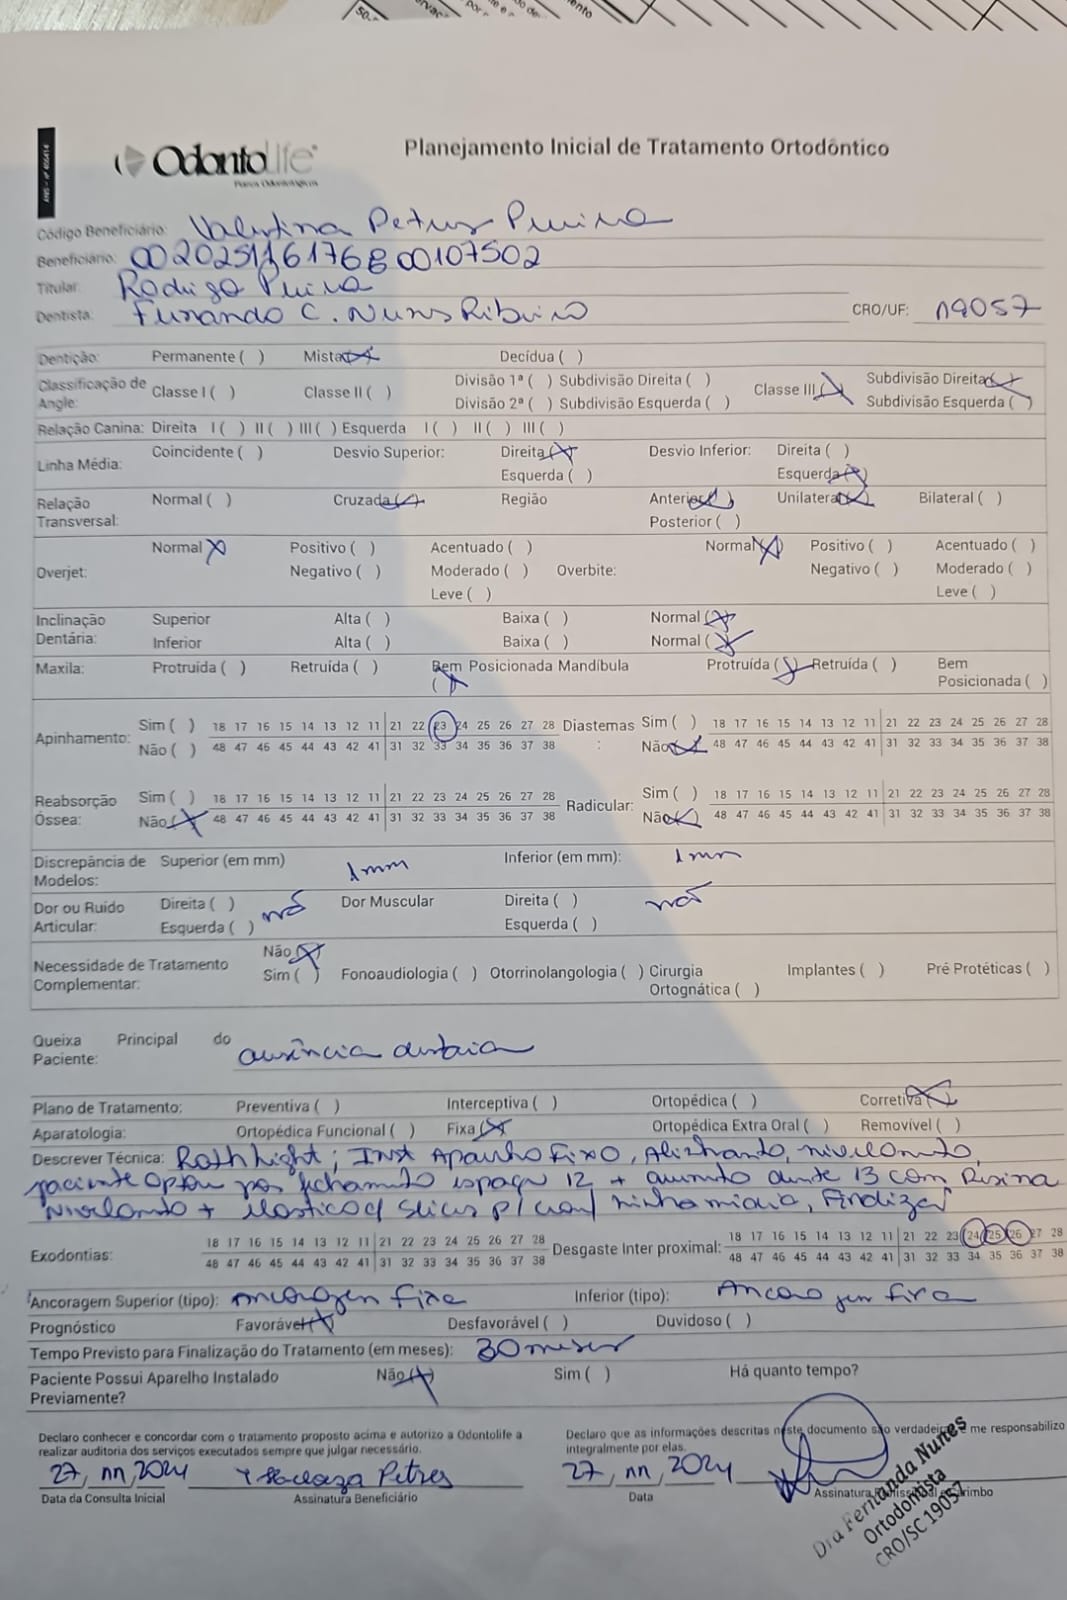 ANS - nº 406414
OdontoLife
Planos Odontológicos
Planejamento Inicial de Tratamento Ortodôntico
Código Beneficiário: Valentina Petres
Beneficiário: 00107502
Titular: Rodrigo
Dentista: Fernanda C. Nunes Ribeiro CRO/UF: 19057
Dentição: Permanente ( ) Mista (X) Decídua ( )
Classificação de Angle: Classe I ( ) Classe II ( ) Divisão 1ª ( ) Subdivisão Direita ( ) Divisão 2ª ( ) Subdivisão Esquerda ( ) Classe III (X) Subdivisão Direita (X) Subdivisão Esquerda ( )
Relação Canina: Direita I ( ) II ( ) III ( ) Esquerda I ( ) II ( ) III ( )
Linha Média: Coincidente ( ) Desvio Superior: Direita (X) Esquerda ( ) Desvio Inferior: Direita ( ) Esquerda (X)
Relação Transversal: Normal ( ) Cruzada (X) Região Anterior (X) Posterior ( ) Unilateral (X) Bilateral ( )
Overjet: Normal (X) Positivo ( ) Negativo ( ) Acentuado ( ) Moderado ( ) Leve ( ) Overbite: Normal (X) Positivo ( ) Negativo ( ) Acentuado ( ) Moderado ( ) Leve ( )
Inclinação Dentária: Superior Alta ( ) Baixa ( ) Normal (X)
Inferior Alta ( ) Baixa ( ) Normal (X)
Maxila: Protruída ( ) Retruída ( ) Bem Posicionada (X) Mandíbula Protruída (X) Retruída ( ) Bem Posicionada ( )
Apinhamento: Sim ( ) 18 17 16 15 14 13 12 11 21 22 23 24 25 26 27 28 Diastemas : Sim ( ) 18 17 16 15 14 13 12 11 21 22 23 24 25 26 27 28
Não ( ) 48 47 46 45 44 43 42 41 31 32 33 34 35 36 37 38 Não (X) 48 47 46 45 44 43 42 41 31 32 33 34 35 36 37 38
Reabsorção Óssea: Sim ( ) 18 17 16 15 14 13 12 11 21 22 23 24 25 26 27 28 Radicular: Sim ( ) 18 17 16 15 14 13 12 11 21 22 23 24 25 26 27 28
Não (X) 48 47 46 45 44 43 42 41 31 32 33 34 35 36 37 38 Não (X) 48 47 46 45 44 43 42 41 31 32 33 34 35 36 37 38
Discrepância de Modelos: Superior (em mm) 1mm Inferior (em mm): 1mm
Dor ou Ruido Articular: Direita ( ) Esquerda ( ) não Dor Muscular Direita ( ) Esquerda ( ) não
Necessidade de Tratamento Complementar: Não (X) Sim ( ) Fonoaudiologia ( ) Otorrinolangologia ( ) Cirurgia Ortognática ( ) Implantes ( ) Pré Protéticas ( )
Queixa Principal do Paciente: ausência
Plano de Tratamento: Preventiva ( ) Interceptiva ( ) Ortopédica ( ) Corretiva (X)
Aparatologia: Ortopédica Funcional ( ) Fixa (X) Ortopédica Extra Oral ( ) Removível ( )
Descrever Técnica: Roth Light; Inst Aparelho Fixo, Alinhamento, nivelamento,
paciente optou por fechamento espaço 12 + aumento dente 13 com Resina
Nivelamento + elastico c/ slices p/ linha media, Finalizar
Exodontias: 18 17 16 15 14 13 12 11 21 22 23 24 25 26 27 28 Desgaste Inter proximal: 18 17 16 15 14 13 12 11 21 22 23 24 25 26 27 28
48 47 46 45 44 43 42 41 31 32 33 34 35 36 37 38 48 47 46 45 44 43 42 41 31 32 33 34 35 36 37 38
Ancoragem Superior (tipo): Ancoragem fixa Inferior (tipo): Ancoragem fixa
Prognóstico Favorável (X) Desfavorável ( ) Duvidoso ( )
Tempo Previsto para Finalização do Tratamento (em meses): 30 meses
Paciente Possui Aparelho Instalado Previamente? Não (X) Sim ( ) Há quanto tempo?
Declaro conhecer e concordar com o tratamento proposto acima e autorizo a Odontolife a
realizar auditoria dos serviços executados sempre que julgar necessário.
Declaro que as informações descritas neste documento são verdadeiras e me responsabilizo
integralmente por elas.
27, 11, 2024 Petres 27, 11, 2024
Data da Consulta Inicial Assinatura Beneficiário Data Assinatura Profissional e Carimbo
Dra Fernanda Nunes
Ortodontista
CRO/SC 19057